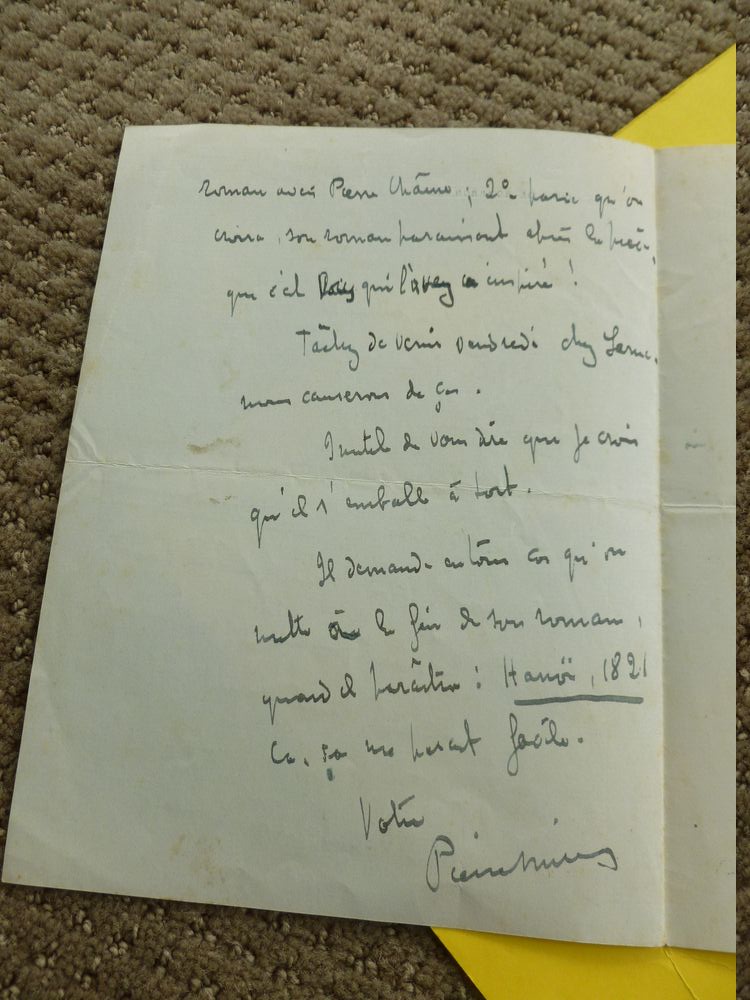 roman avec Pierre ; 2° parce qu'on
croira, son roman paraissant après la pièce,
que c'est vous qui l'avez inspiré !
Tâchez de venir vendredi chez
nous causerons de ça.
Inutile de vous dire que je crois
qu'il s'emballe à tort.
Il demande en tous cas qu'on
mette à la fin de son roman,
quand il paraîtra : Hanoï, 1821
Ça, ça me paraît facile.
Votre